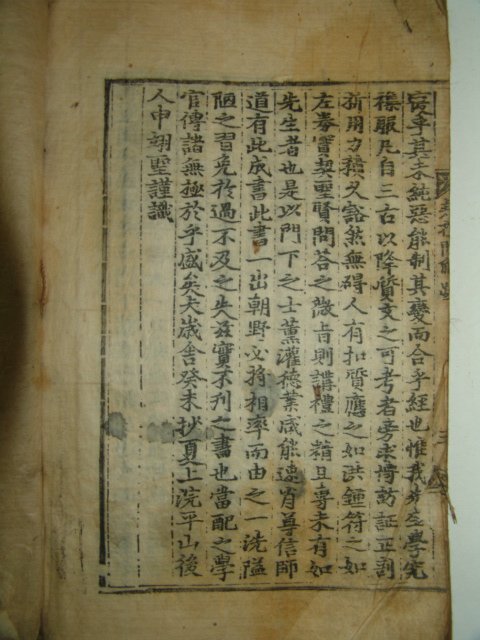 乎其未純惡能制其變而合乎經也惟我先生學究
禮服凡自三古以降質文之可考者旁求博訪証正剖
析用力猿久豁然無碍人有扣質應之如洪鍾符之如
左券實契聖賢問答之微旨則講禮之精且專未有如
先生者也是以門下之士薰灌德業咸能速肖尊信師
道有此成書此書一出朝野必將相率而由之一洗隘
陋之習免於過不及之失玆實不刊之書也當配之學
官傳諸無極於乎盛矣夫歲舍癸未抄夏上浣平山後
人申翊聖謹識
疑禮問解